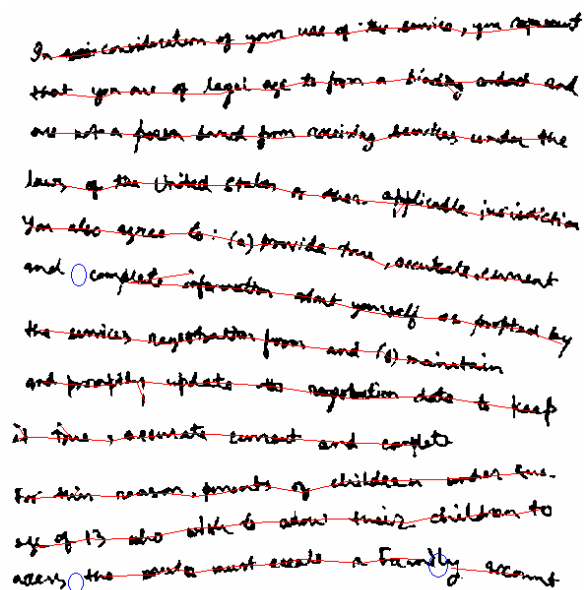 In consideration of your use of the service, you represent
that you are of legal age to form a binding contract and
are not a person barred from receiving services under the
laws of the United States or other applicable jurisdiction
You also agree to : (a) provide true, accurate, current
and complete information about yourself as by
the services registration form and (b) maintain
and promptly update the registration data to keep
it true, accurate current and complete
For this reason, parents of children under the
age of 13 who wish to allow their children to
access the must create a Family account